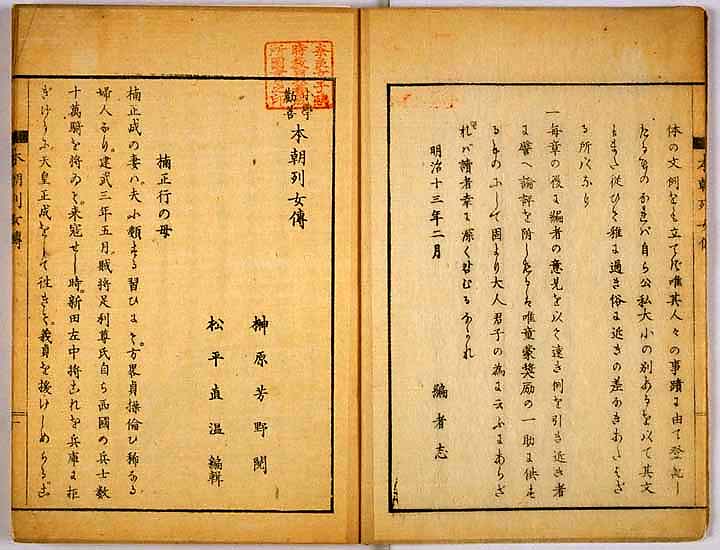 体の文例をも立てず唯其人々の事蹟に由て登記し
たるものなれば自ら公私大小の別あるを以て其文
も亦従ひて雅に過き俗に近きの差なきあたはざ
る所以なり
一毎章の後に編者の意見を以て遠き例を引き近き者
に譬へ論評を附したるは唯童蒙奨励の一助に供す
るものにして固より大人君子の為に云ふにあらざ
れば讀者幸に深く咎むるなかれ
明治十三年二月
編者志
本朝列女傳
勸善
本朝列女傳
榊原芳野閲
松平直温編輯
楠正行の母
楠正成の妻は夫小類する習ひにて方畧貞操倫ひ稀なる
婦人なり建武三年五月賊将足利尊氏自ら西國の兵士数
十萬騎を将ゐて来寇せし時新田左中将これを兵庫に拒
ぎけりふ天皇正成をして往きて義貞を援けしめらるゞ
本朝列女傳